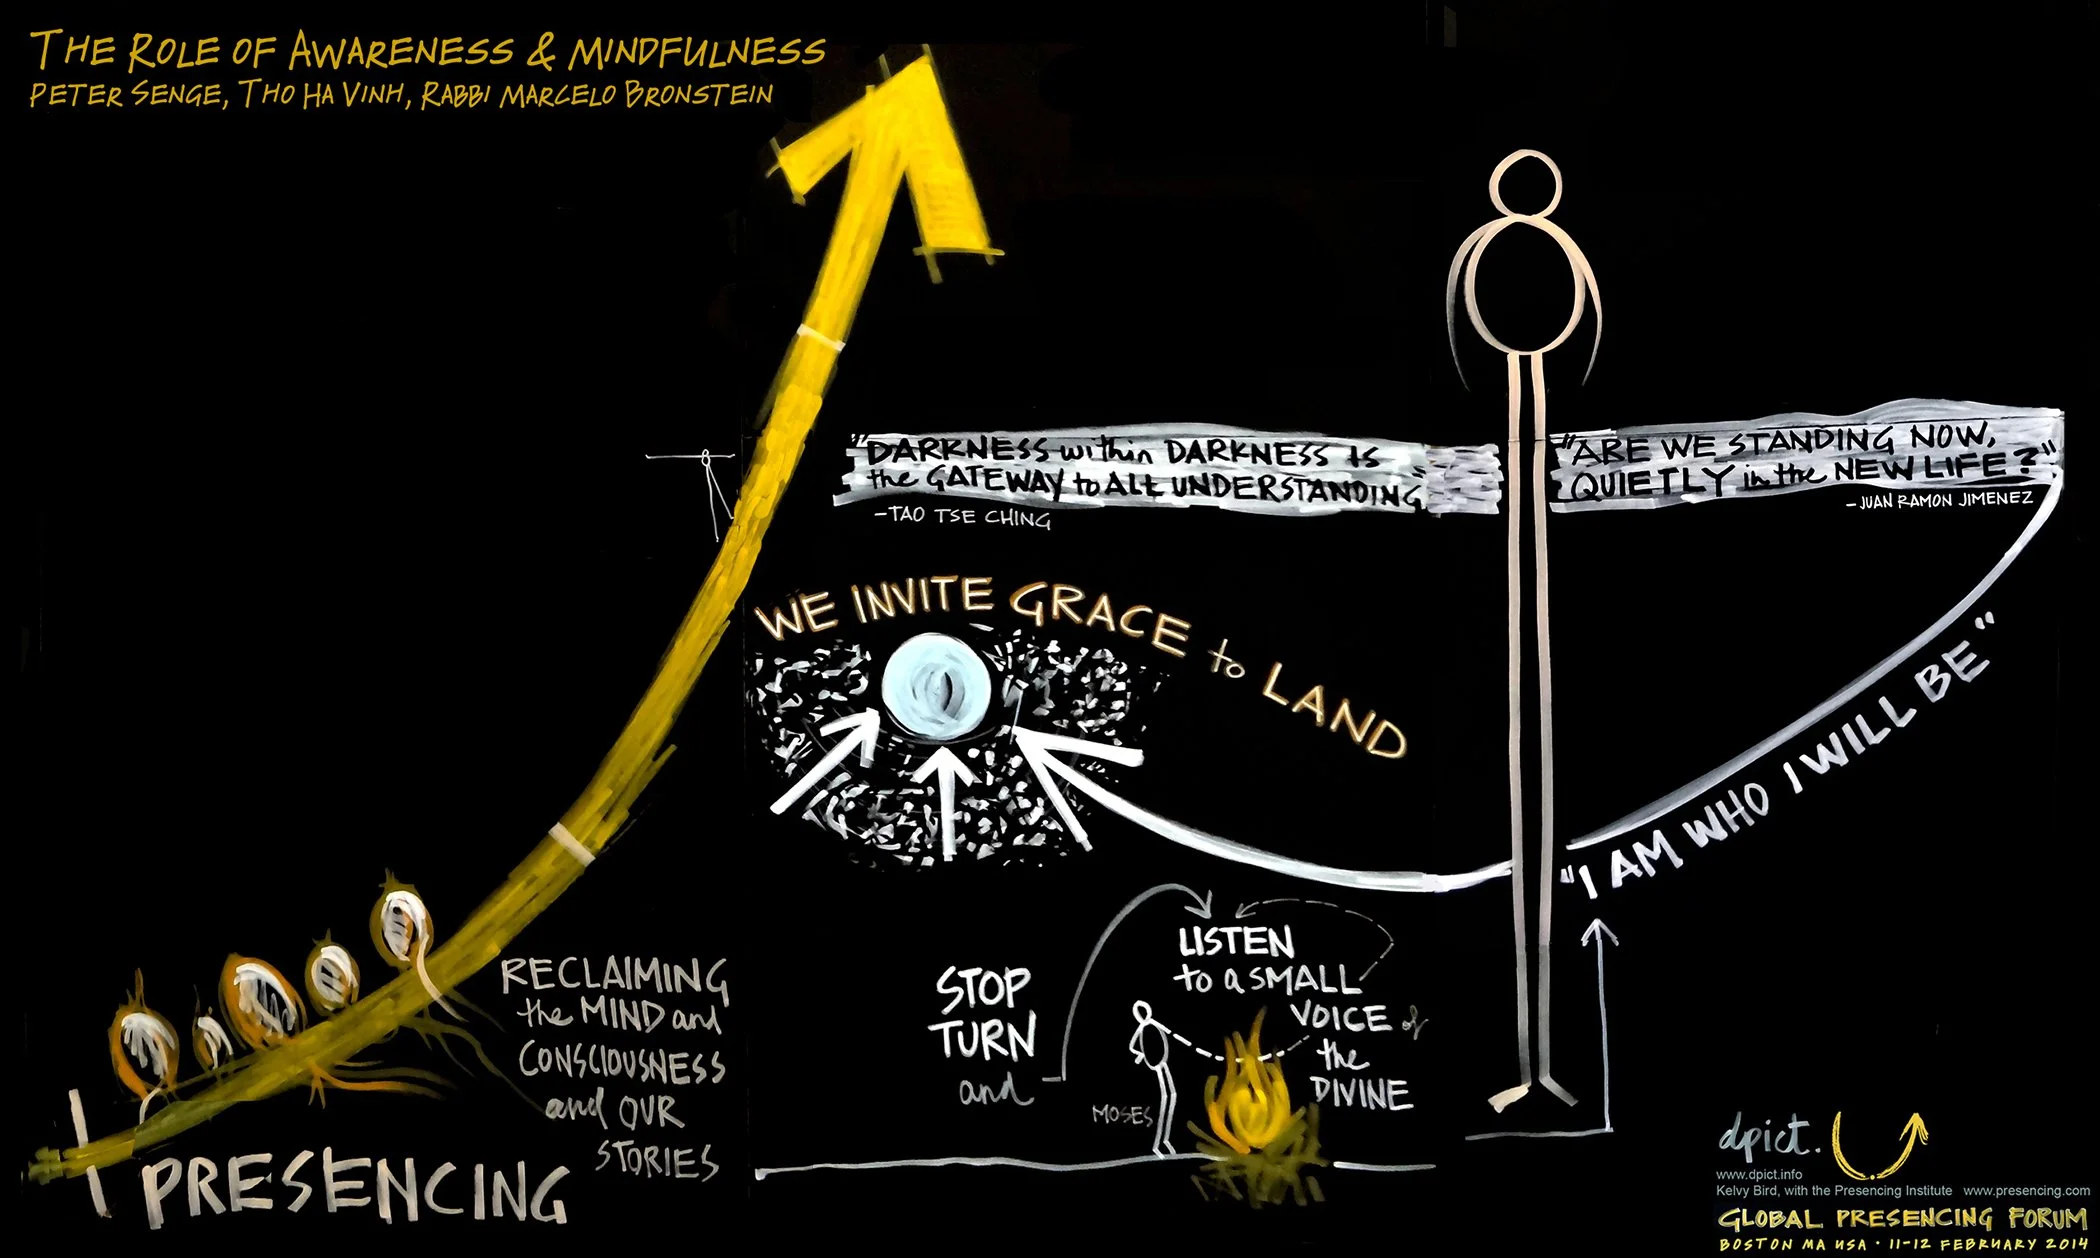 THE ROLE OF AWARENESS & MINDFULNESS
PETER SENGE, THO HA VINH, RABBI MARCELO BRONSTEIN
"DARKNESS within DARKNESS is
the GATEWAY to ALL UNDERSTANDING"
-TAO TSE CHING
"ARE WE STANDING NOW,
QUIETLY in the NEW LIFE?"
-JUAN RAMON JIMENEZ
WE INVITE GRACE to LAND
"I AM WHO I WILL BE"
STOP
TURN
and
LISTEN
to a SMALL
VOICE of
the
DIVINE
MOSES
RECLAIMING
the MIND and
CONSCIOUSNESS
and OUR
STORIES
PRESENCING
dpict.
www.dpict.info
Kelvy Bird, with the Presencing Institute www.presencing.com
GLOBAL PRESENCING FORUM
BOSTON MA USA · 11-12 FEBRUARY 2014